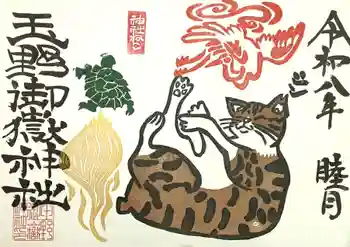 令和八年
睦月
玉野御嶽神社